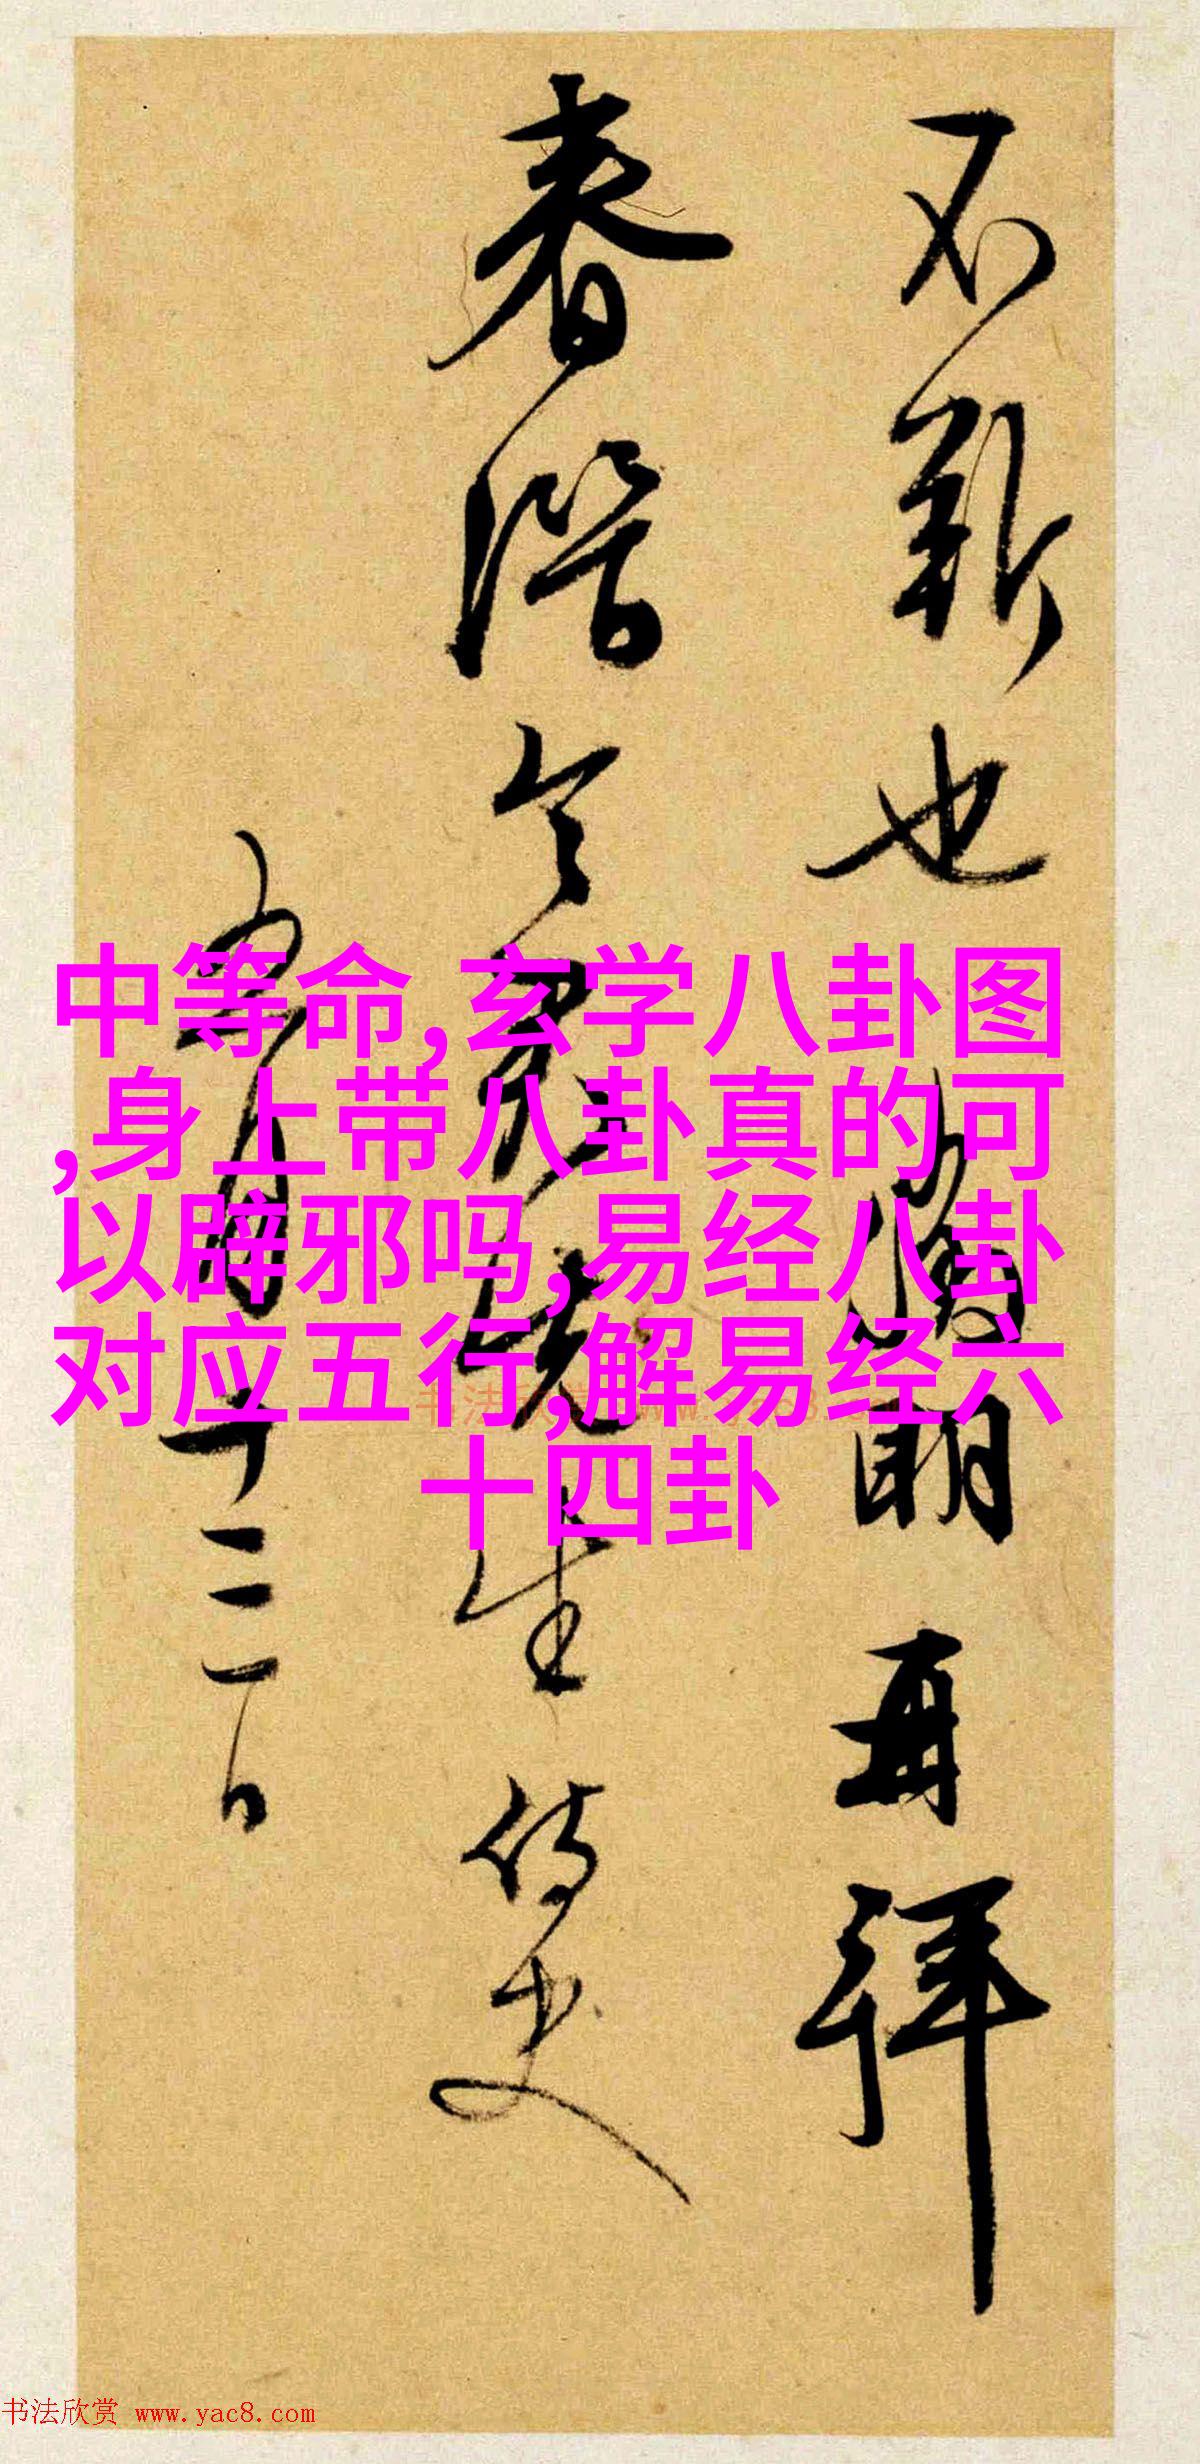 不斯也
再拜
春
先生侍史
月十三日
中等命,玄学八卦图
,身上带八卦真的可
以辟邪吗,易经八卦
对应五行,解易经六
十四卦
书法欣赏 www.yac8.com